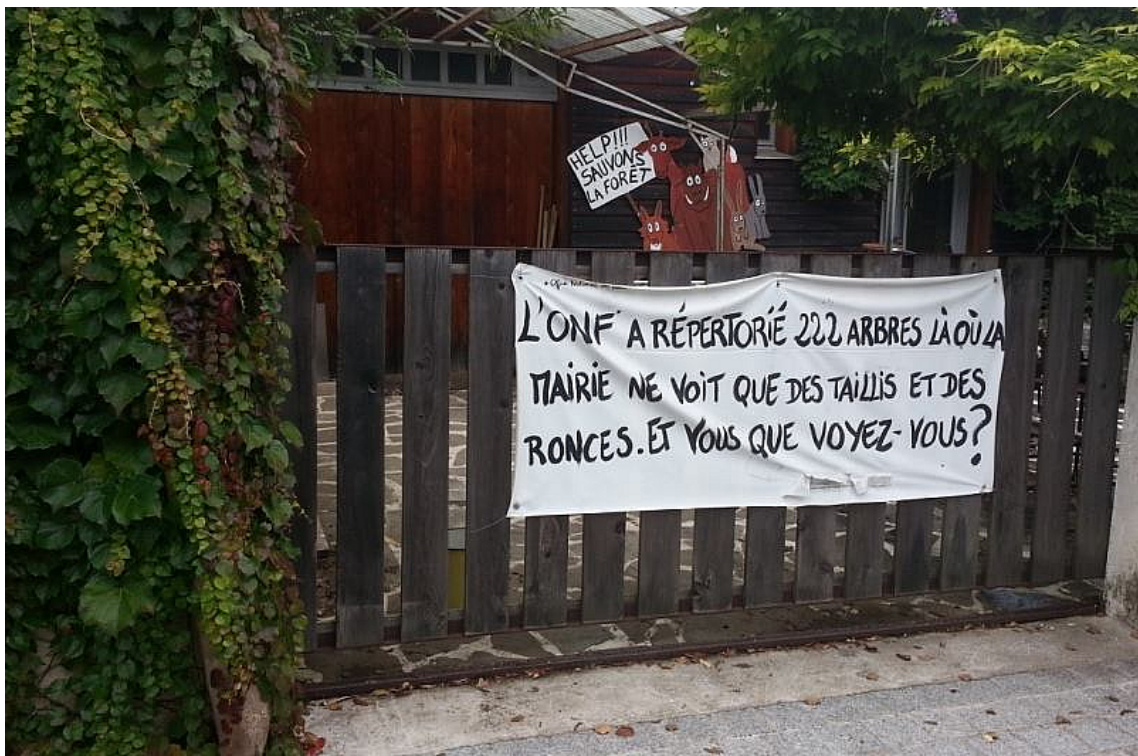 HELP!!!
SAUVONS
LA FORÊT
L'ONF A RÉPERTORIÉ 222 ARBRES LÀ OÙ LA
MAIRIE NE VOIT QUE DES TAILLIS ET DES
RONCES. ET VOUS QUE VOYEZ-VOUS?